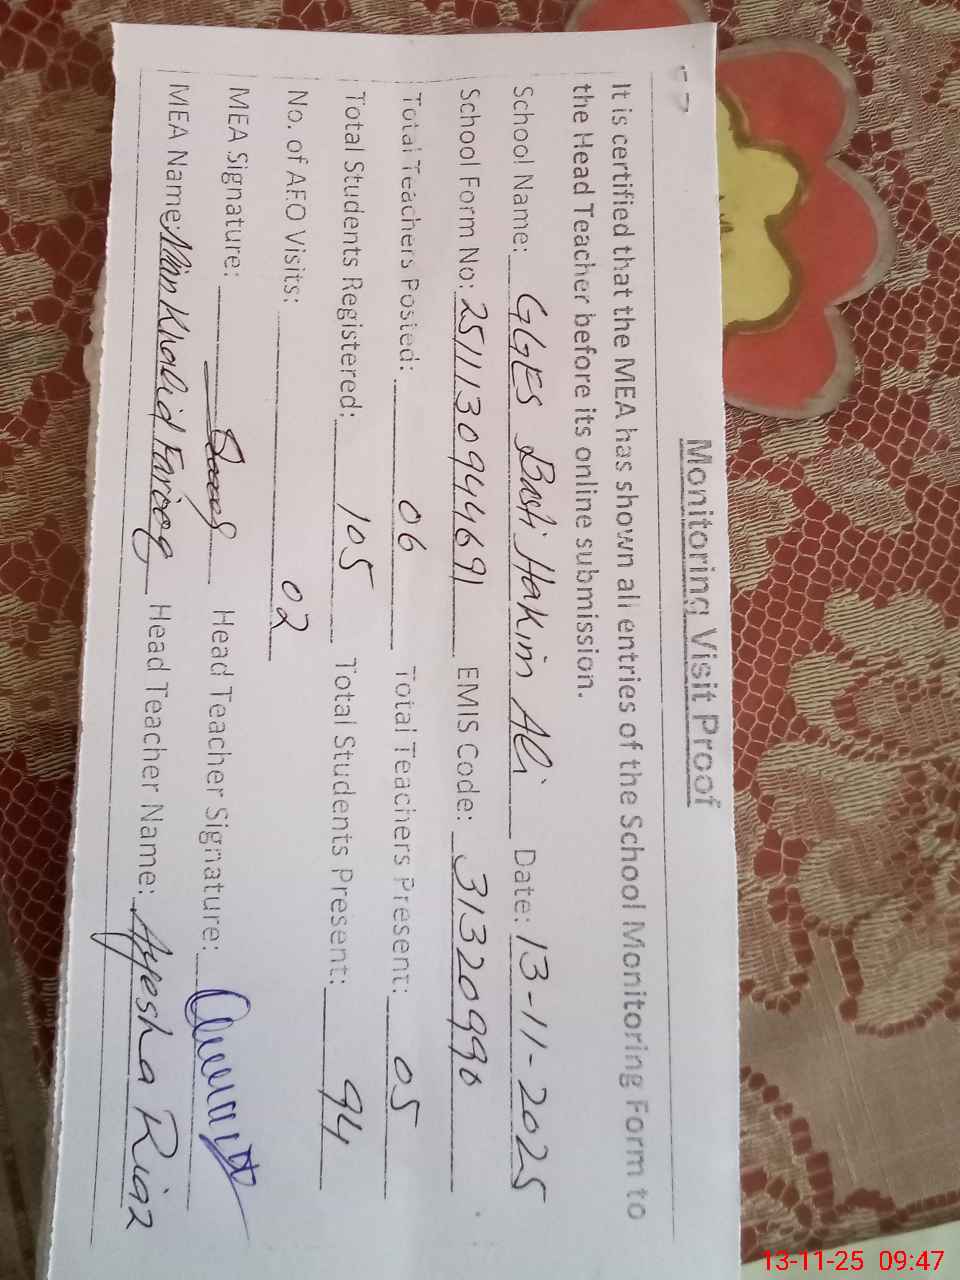 Monitoring Visit Proof
It is certified that the MEA has shown all entries of the School Monitoring Form to
the Head Teacher before its online submission.
School Name: GGES Basti Hakim Ali Date: 13-11-2025
School Form No: 2511130944691 EMIS Code: 31320990
Total Teachers Posted: 06 Total Teachers Present: 05
Total Students Registered: 105 Total Students Present: 94
No. of AEO Visits: 02
MEA Signature: Head Teacher Signature:
MEA Name: Mian Khalid Farooq Head Teacher Name: Ayesha Riaz
13-11-25 09:47